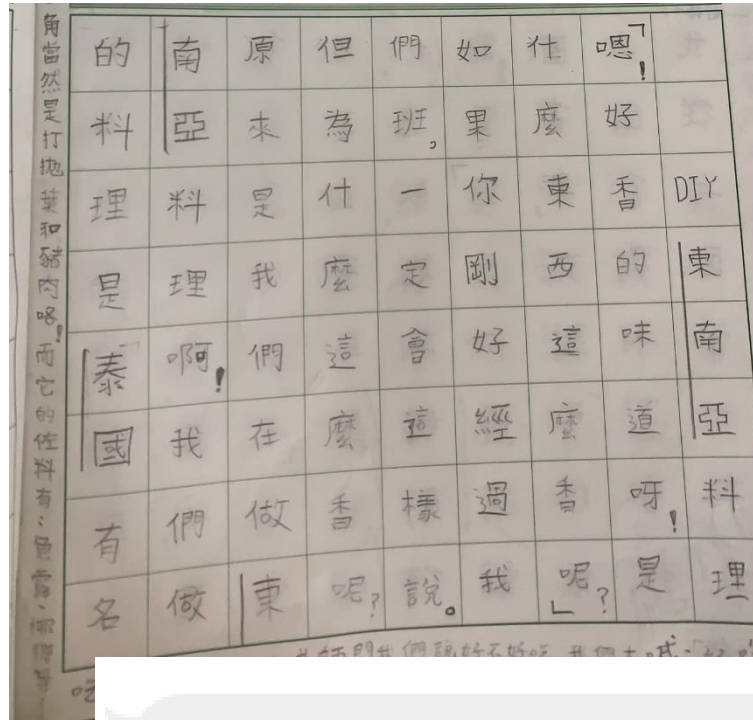 DIY東南亞料理
「嗯!好香的味道呀!是
什麼東西這麼香呢?」
如果你剛好經過我
們班,一定會這樣說。
但為什麼這麼香呢?
原來是我們在做東
南亞料理啊!我們做
的料理是泰國有名
角當然是打拋葉和豬肉咯!而它的佐料有:魚露、
師問我們說好不好吃,我們大喊:好